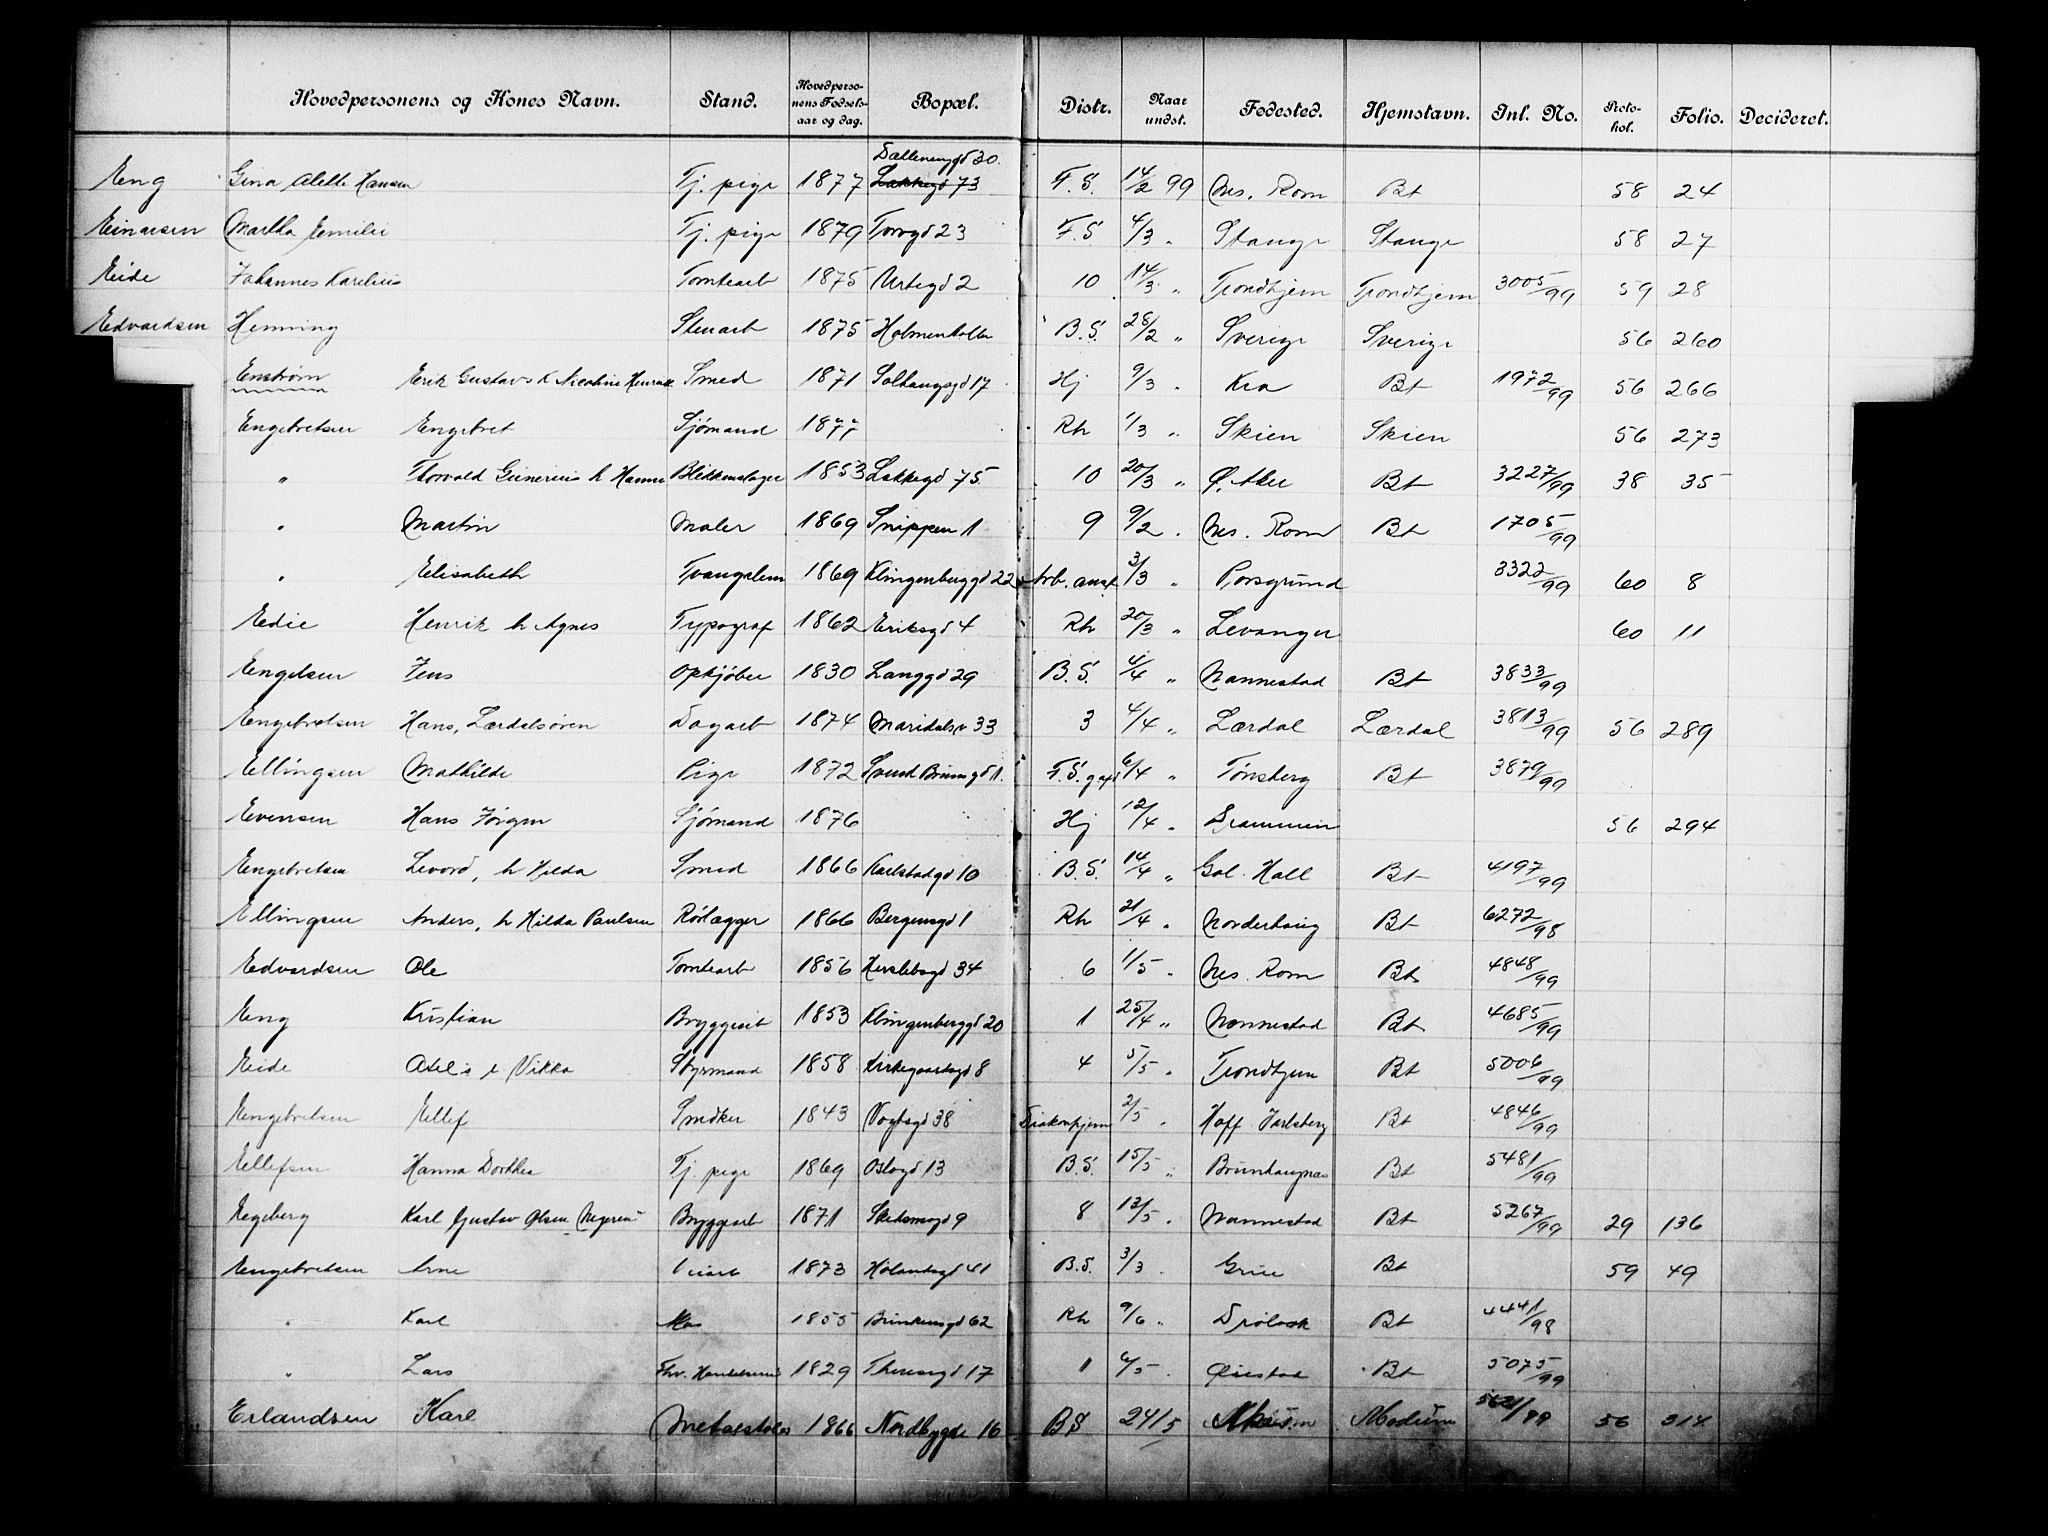 Hovedpersonens og Kones Navn. Stand. Hovedpersonens Fødselsaar og dag. Bopæl. Distr. Naar undst. Fødested. Hjemstavn. Inl. No. Protokol. Folio. Decideret.
Dællenenggd 30.
Eng Gina Alette Hansen Tj. pige 1877 Lakkegd 73 F.S. 14/2 99 Nes. Rom Bt 58 24
Einarsen Martha Emilie Tj. pige 1879 Torvgd 23 F.S 4/3 " Stange Stange 58 27
Eide Johannes Karelius Tomtearb 1875 Urtegd 2 10 14/3 " Trondhjem Trondhjem 3005/99 59 28
Edvardsen Henning Stenarb 1875 Holmenkollen B.S. 28/2 " Sverige Sverige 56 260
Enstrøm Erik Gustav & Nicoline Smed 1871 Solhaugsgd 17 Hj 9/3 " Kra Bt 1972/99 56 266
Engebretsen Engebret Sjømand 1877 Rh 1/3 " Skien Skien 56 273
" Thorvald Gunerius h Hanna Blikkenslager 1853 Lakkegd 75 10 20/3 " Ø. Aker Bt 3227/99 38 35
" Martin Maler 1869 Snippen 1 9 9/2 " Nes. Rom Bt 1705/99
" Elisabeth Tvangslem 1869 Klingenberggd 22 Arb. anst 3/3 " Porsgrund 3322/99 60 8
Edie Henrik h Agnes Typograf 1862 Eriksgd 4 Rh 20/3 " Levanger 60 11
Engelsen Jens Opkjøber 1830 Langgd 29 B.S. 4/4 " Nannestad Bt 3833/99
Engebretsen Hans, Lærdalsøren Dagarb 1874 Maridalsv 33 3 4/4 " Lærdal Lærdal 3813/99 56 289
Ellingsen Mathilde Pige 1872 Svend Bruunsgd 1. F.S. 6/4 " Tønsberg Bt 3879/99
Evensen Hans Jørgen Sjømand 1876 Hj 12/4 " Drammen 56 294
Engebretsen Levord, h Hilda Smed 1866 Karlstadgd 10 B.S. 14/4 " Gol. Hall Bt 4197/99
Ellingsen Anders, h Hilda Paulsen Rørlægger 1866 Bergensgd 1 Rh 21/4 " Norderhoug Bt 6272/98
Edvardsen Ole Tomtearb 1856 Herslebsgd 34 6 1/5 " Nes. Rom Bt 4848/99
Eng Kristian Bryggearb 1853 Klingenberggd 20 1 25/4 " Nannestad Bt 4685/99
Eide Styrmand 1858 Kirkegaardsgd 8 4 5/5 " Trondhjem Bt 5006/99
Engebretsen Ellef Snedker 1843 Vogtsgd 38 Diakonhjem 2/5 " Hoff Jarlsberg Bt 4846/99
Ellefsen Hanna Dorthea Tj. pige 1869 Oslogd 13 B.S. 15/5 " Bt 5481/99
Egeberg Karl Gustav Olsen Bryggearb 1871 Skedsmogd 9 8 12/5 " Nannestad Bt 5267/99 29 136
Engebretsen Arne 1873 Hølandsgd 41 B.S. 3/3 " Grue Bt 59 49
" Karl 1855 62 Rh 9/6 " Drøbak Bt 4441/98
" Lars Fhv. 1829 Theresesgd 17 1 6/5 " Øiestad Bt 5075/99
Erlandsen Karl 1866 Nordbygdn 16 BS 24/5 Modum /99 56 314